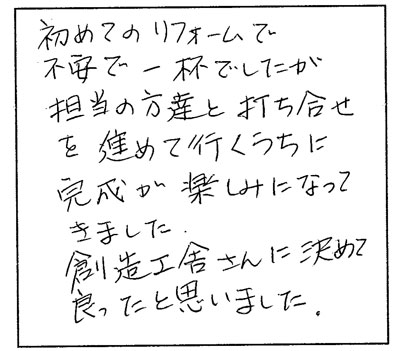 初めてのリフォームで
不安で一杯でしたが
担当の方達と打ち合せ
を進めて行くうちに
完成が楽しみになって
きました.
創造工舎さんに決めて
良ったと思いました.